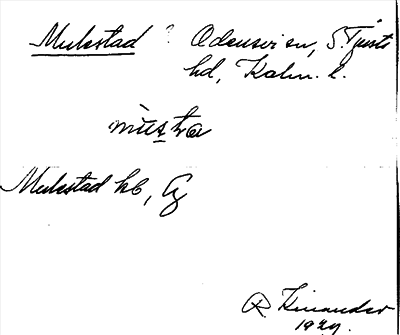 Mulestad ? Odensvi sn, S. Tjusts
hd, Kalm. l.
Mulestad hb, Cg
R Kinander
1929.